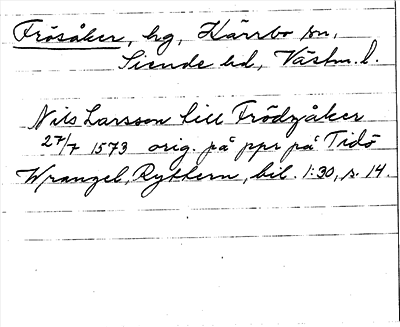 Frösåker, hg, Kärrbo sn,
Siende hd, Västm. l.
Nils Larsson till Frödzåker
27/7 1573 orig. på ppr på Tidö
Wrangel, Rytthern, bil. 1:30, s. 14.